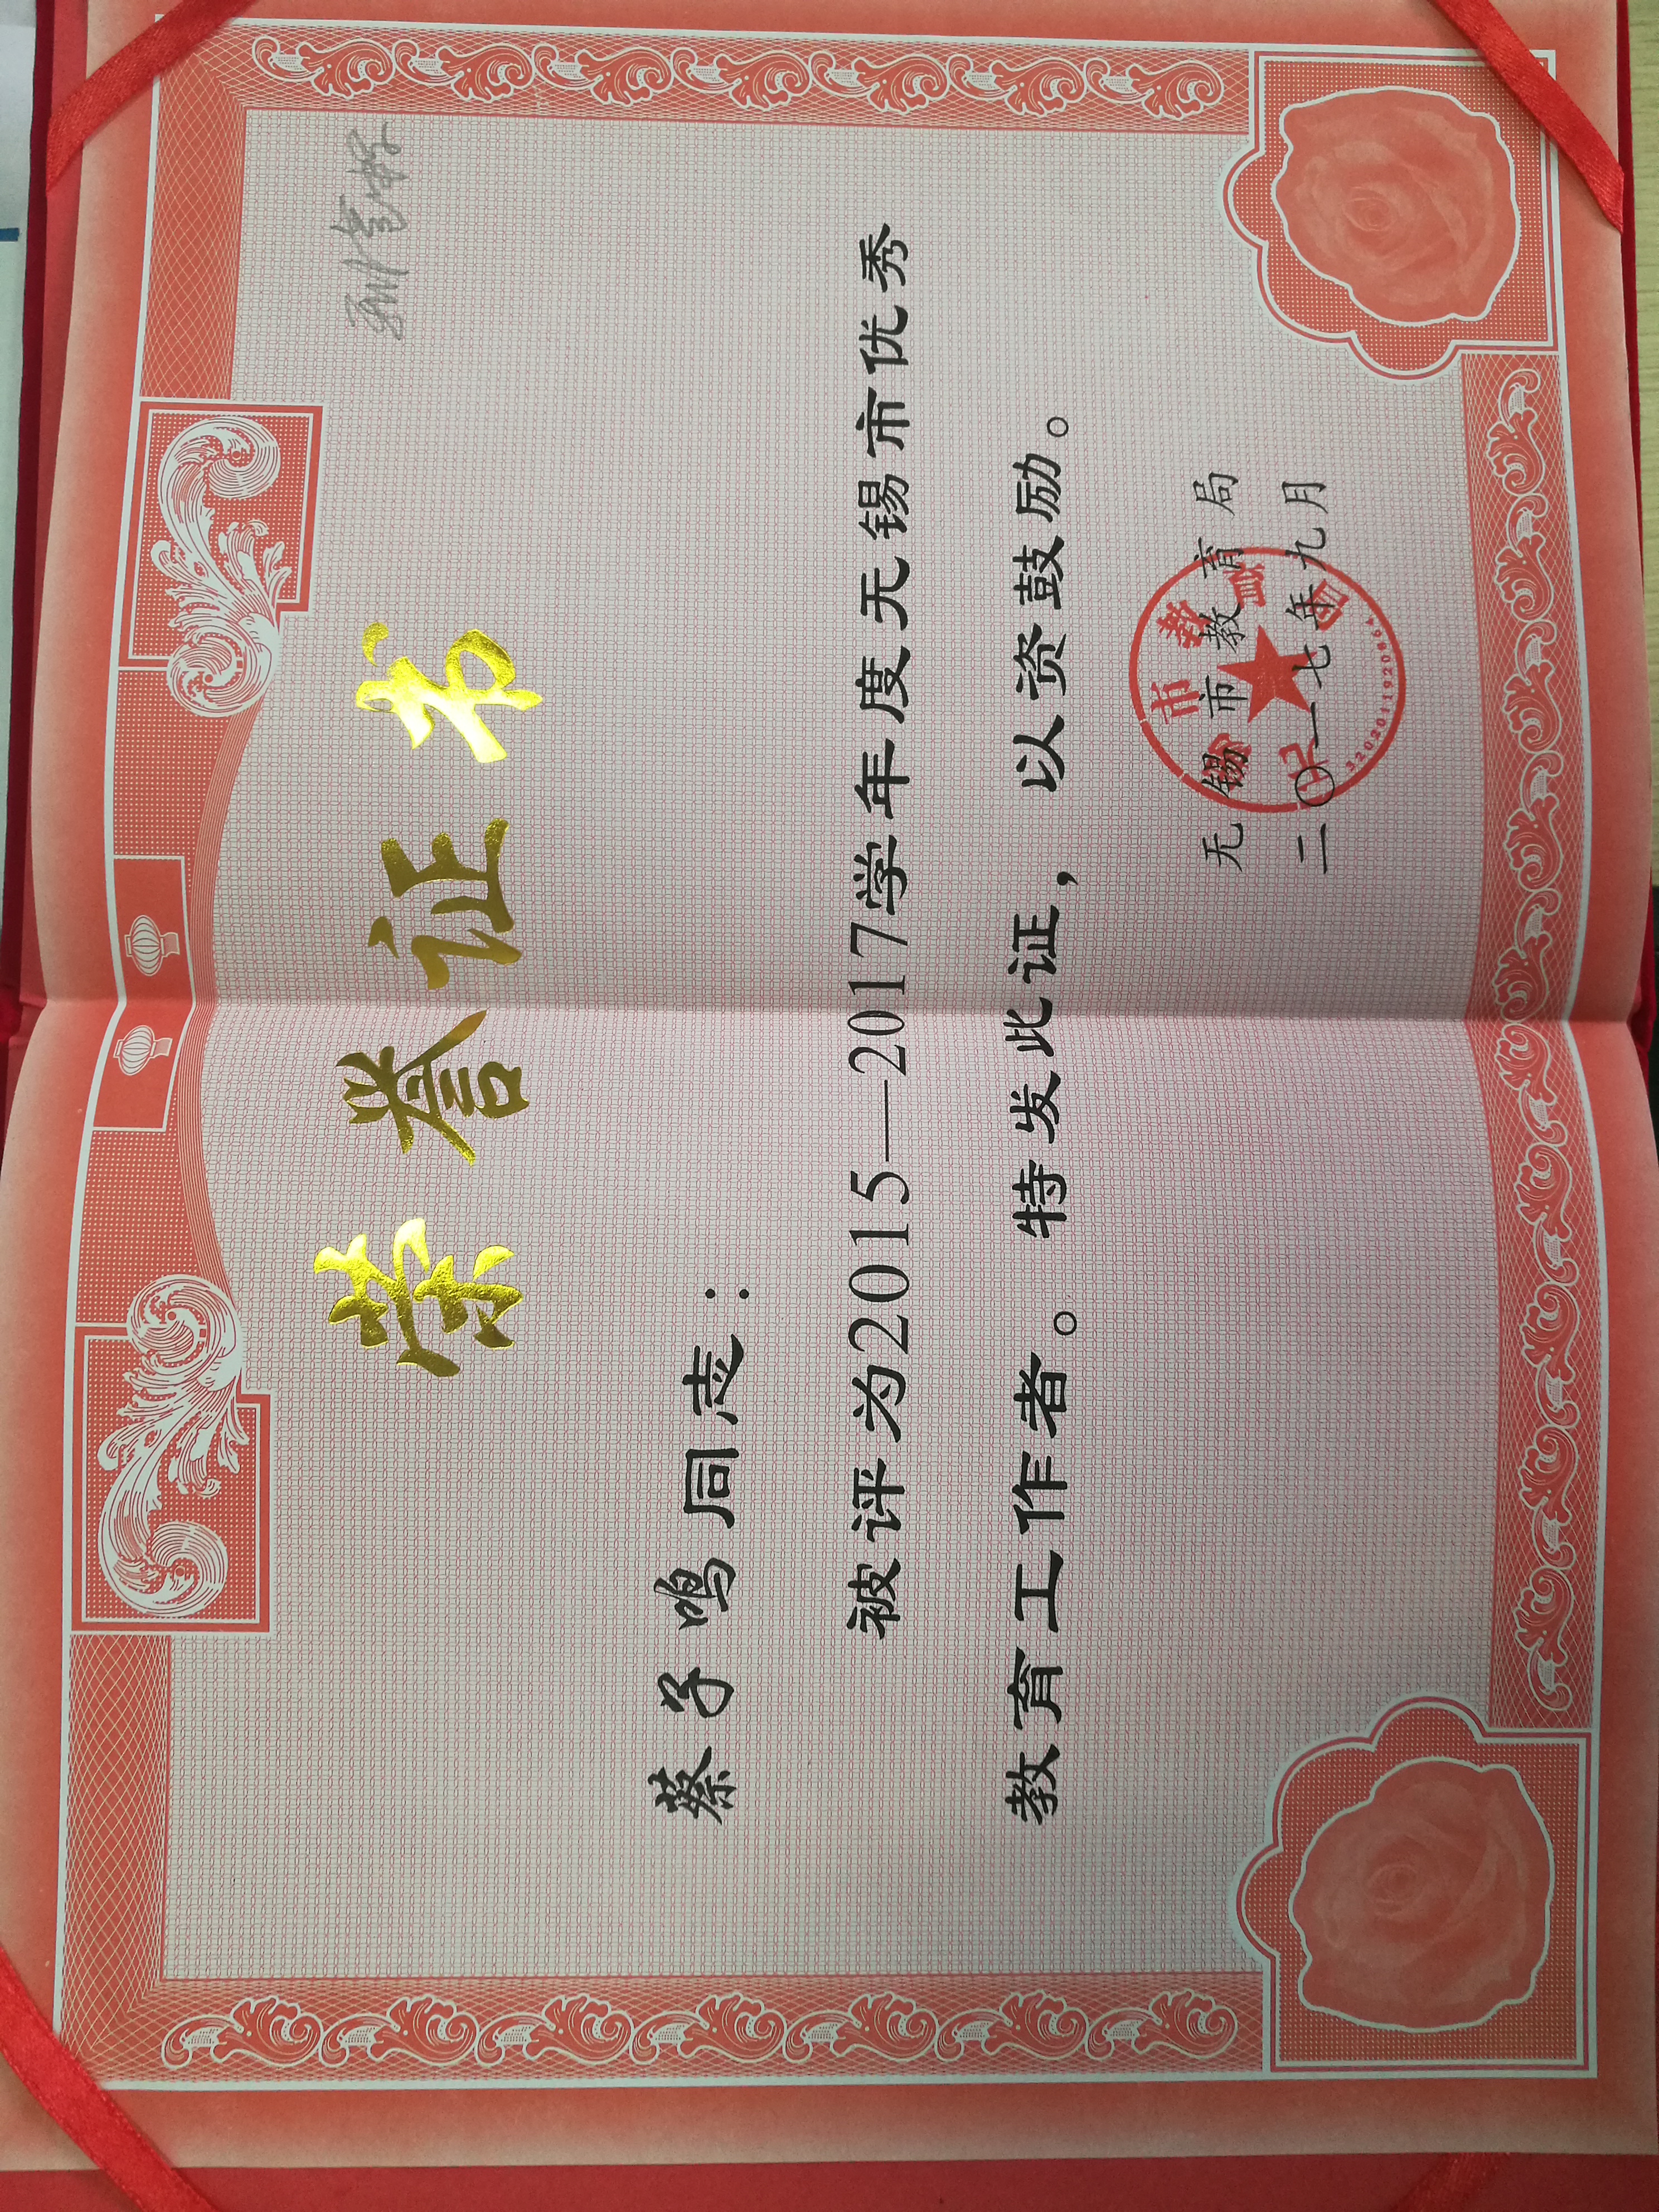 荣誉证书
蔡子鸣同志：
被评为2015—2017学年度无锡市优秀
教育工作者。特发此证，以资鼓励。
无锡市教育局
二〇一七年九月
无锡市教育局
3202011920864